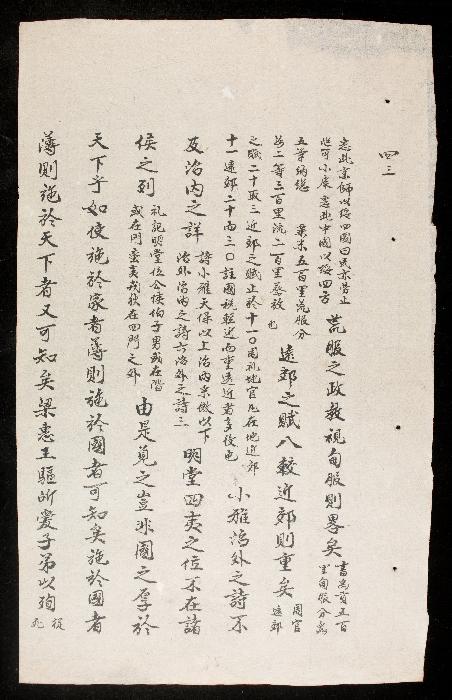 四三
惠此京師以綏四國曰民亦勞止
汔可小康惠此中國以綏四方
荒服之政教視甸服則畧矣
書禹貢五百
里甸服分為
五等納總
粟米五百里荒服分
為二等三百里流二百里蔡放
也
遠郊之賦八較近郊則重矣
周官
遠郊
之賦二十取三近郊之賦止於十一〇周礼地官凡在地近郊
十一遠郊二十而三〇註國稅輕近而重遠近者多役也
小雅治外之詩不
及治內之詳
詩小雅天保以上治內采薇以下
治外治內之詩六治外之詩三
明堂四夷之位不在諸
侯之列
礼記明堂位公侯伯子男或在階
或在門蛮夷戎狄在四門之外
由是覔之豈非國之厚於
天下乎如使施於家者薄則施於國者可知矣施於國者
薄則施於天下者又可知矣梁惠王驅所愛子弟以殉